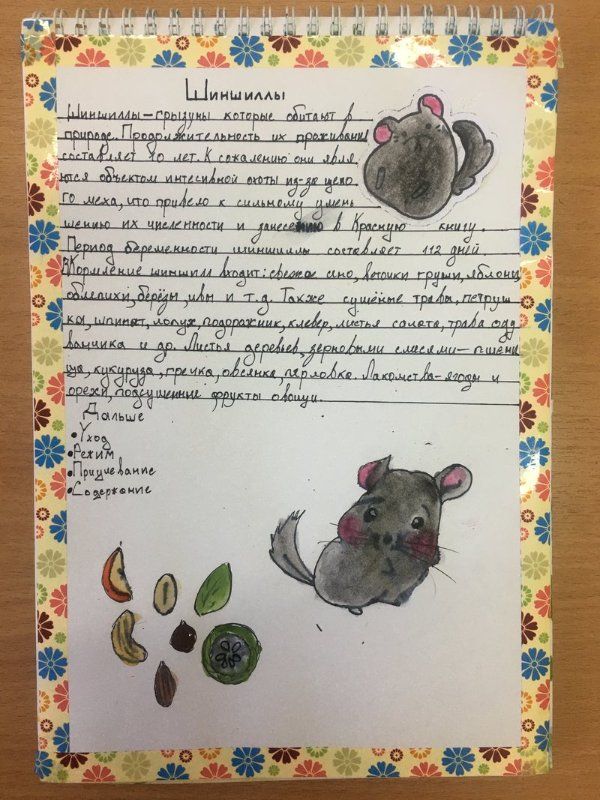 Шиншиллы
Шиншиллы–грызуны которые обитают в
природе. Продолжительность их проживания
составляет 10 лет. К сожалению они явля
ются объектом интесивной охоты из-за ценно
го меха, что привело к сильному умень
шению их численности и занесению в Красную книгу.
Период беременности шиншиллы составляет 112 дней
В кормление шиншилл входит: свежое сино, веточки груши, яблони,
облепихи, берёзы, ивы и т.д. Также сушёные трава, петруш
ка, шпинат, лопух, подорожник, клевер, листья салата, трава оду
ванчика и др. Листья деревьев, зерновыми смесями–пшени
ца, кукуруза, гречка, овсянка, перловка. Лакомства-ягоды и
орехи, подсушенные фрукты овощи.
Дальше
•Уход
•Режим
•Приулевание
•Содержание